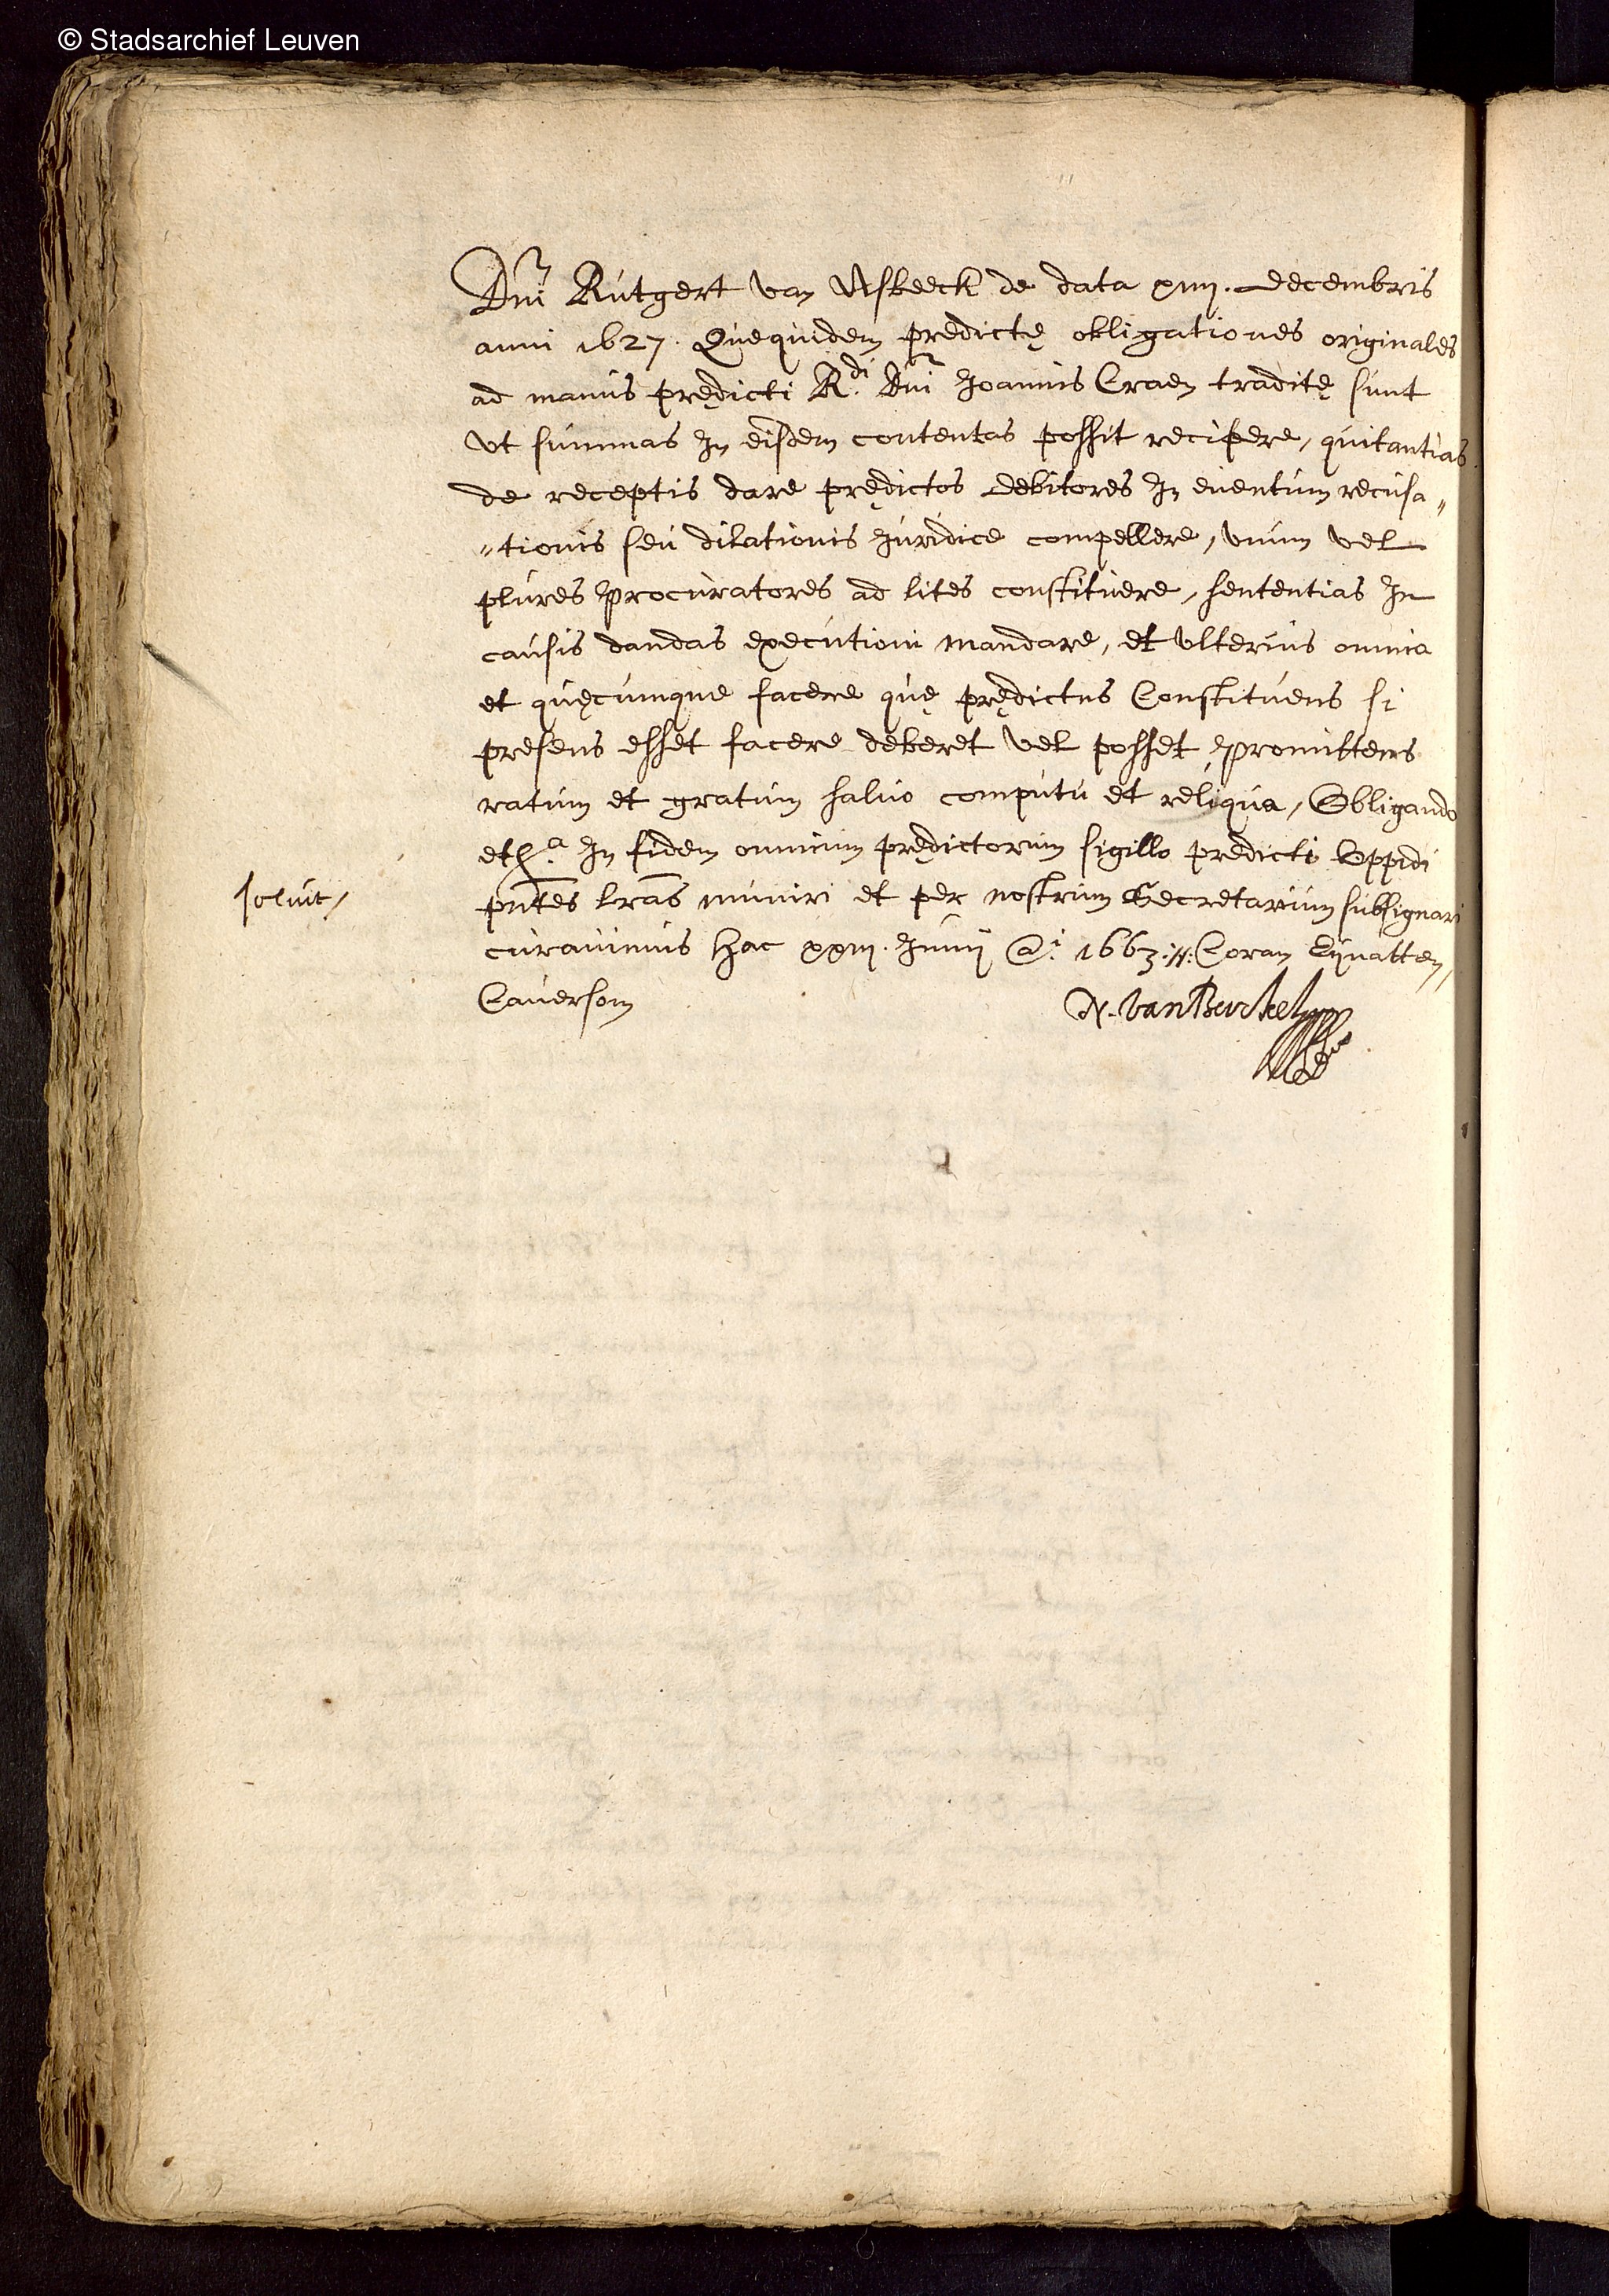 © Stadsarchief Leuven
Dni Rutgert van Asbeeck de data xiiij. decembris
anni 1627. Quequidem predictę obligationes originales
ad manus prędicti R.di Dni Joannis Craen traditę sunt
vt summas In eisdem contentas possit recipere, quitantias
de receptis dare prędictos debitores In euentum recusa„
„tionis seu dilationis Juridice compellere, vnum vel
plures procuratores ad lites constituere, sententias In
causis dandas executioni mandare, et vlterius omnia
et quęcumque facere quę prędictus Constituens si
presens esset facere deberet vel posset, promittens
ratum et gratum saluo computu et reliqua, Obligando
etc.a In fidem omnium prędictorum sigillo predicti Oppidi
soluit/
pntes lras muniri et per nostrum Secretarium subsignari
curauimus hac xxiij. Junij Ai. 1663 .//: Coram Eynatten,
Cauerson
N. van Berckel